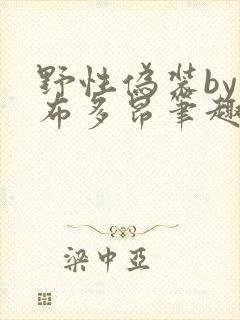 野性偽裝by
布多昂筆趣
梁中亞